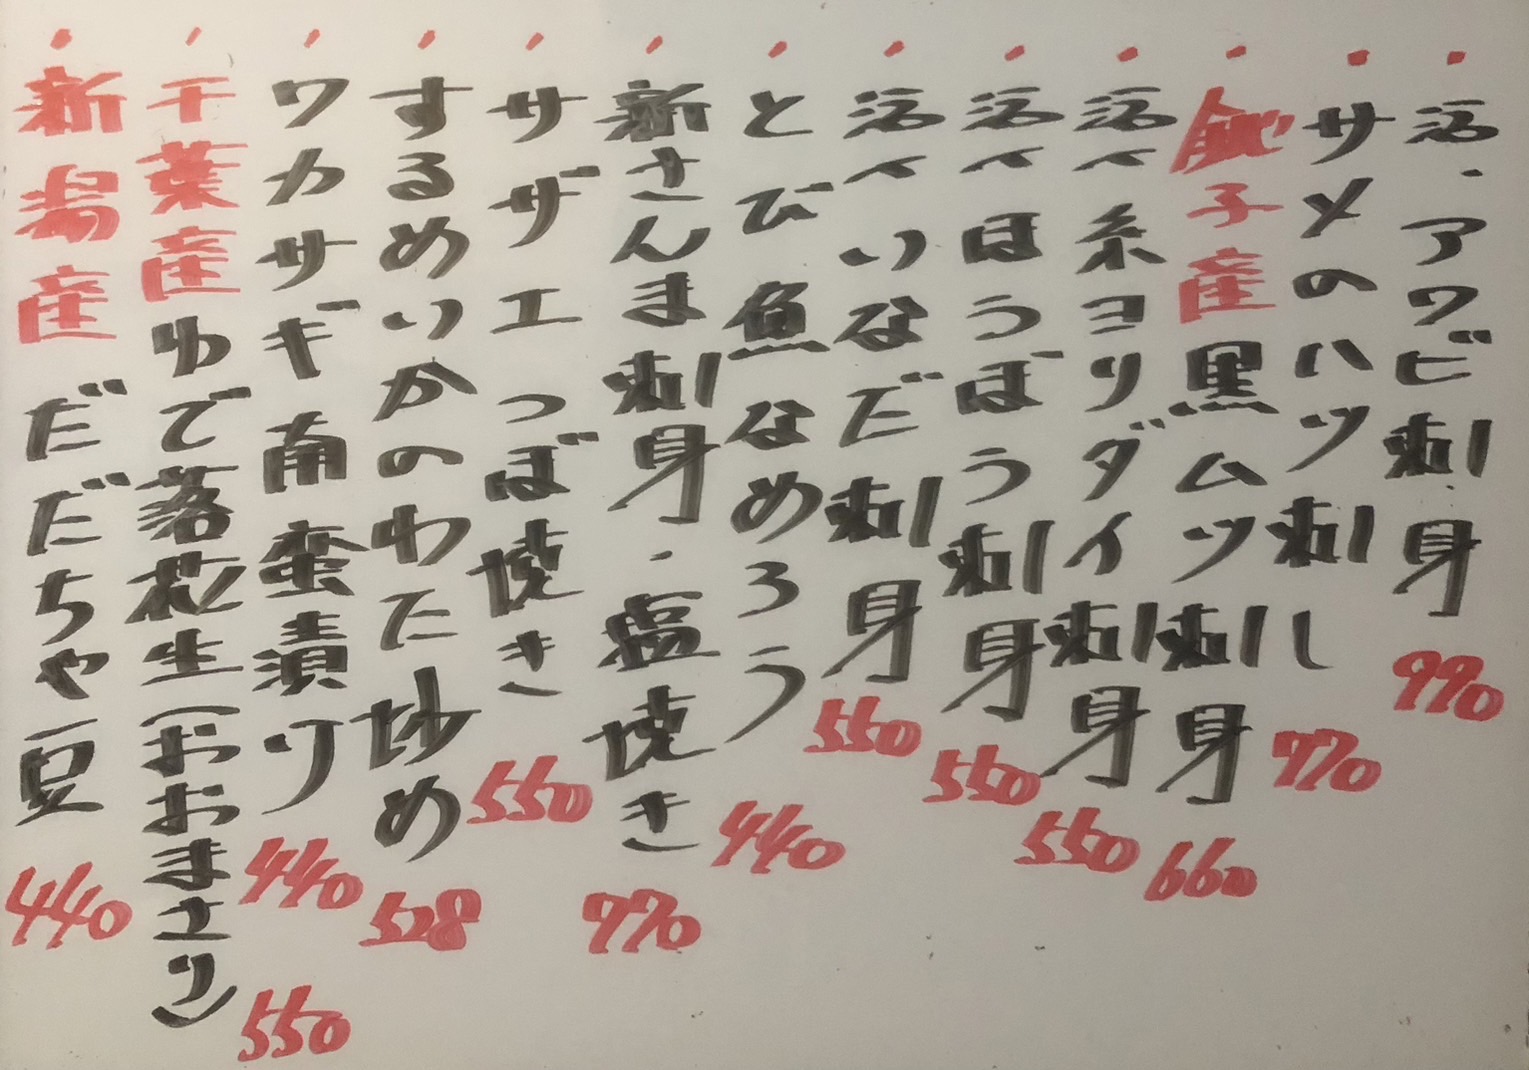 ・活・アワビ刺身 990
・サメのハツ刺し 770
・銚子産黒ムツ刺身 660
・活〆糸ヨリダイ刺身 550
・活〆ほうぼう刺身 550
・活〆いなだ刺身 550
・とび魚なめろう 440
・新さんま刺身・塩焼き 770
・サザエつぼ焼き 550
・するめいかのわた炒め 528
・ワカサギ南蛮漬け 440
・千葉産ゆで落花生(おおまさり) 550
・新潟産だだちゃ豆 440